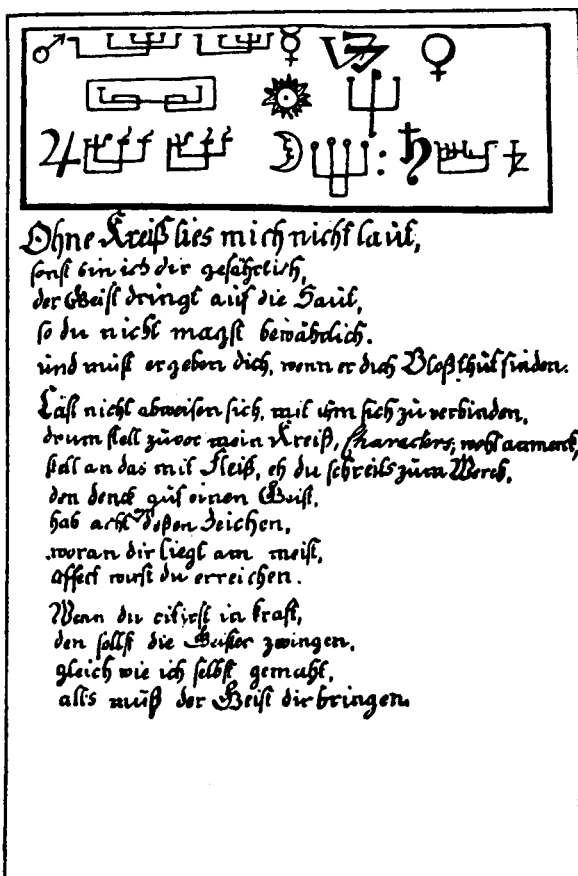 Ohne Kreiß lies mich nicht laut,
sonst bin ich dir gefährlich,
der Geist dringt auf die Haut,
so du nicht magst bewährlich.
und must ergeben dich, wenn er dich Bloß thut finden.
Läst nicht abweisen sich, mit ihm sich zu verbinden,
drum stell zuvor mein Kreiß, Characters, wohl
stell an das mit Fleiß, eh du schreits zum Werck,
den denck gut einen Geist,
hab acht deßen Zeichen,
woran dir liegt am meist,
Affect wirst du erreichen.
Wenn du citirst in Kraft,
den sollst die Geister zwingen,
gleich wie ich selbst gemaht,
alls muß der Geist dir bringen.